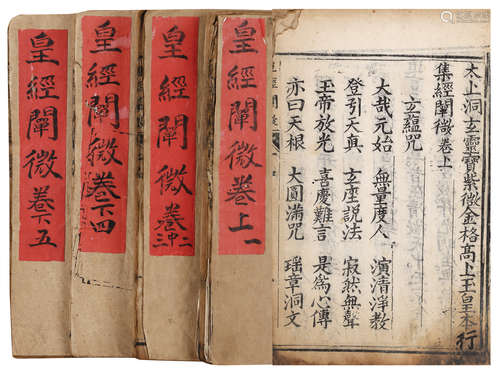 太上洞玄靈寶紫微金格高上玉皇本行
集經闡微卷上
玄蘊咒
大哉元始 無量度人 演清淨教
登引天真 玄座説法 寂然無聲
玉帝放光 喜慶難言 是為心傳
亦曰天根 大圓滿咒 瑶章洞文
皇經闡微卷上一
皇經闡微卷中二三
皇經闡微卷下四
皇經闡微卷下五